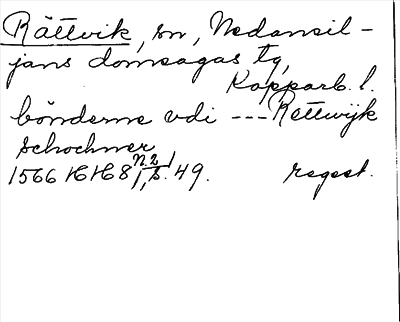 Rättvik, sn, Nedansil-
jans domsagas tg,
Kopparb. l.
bönderne vdi --- Rettwijk
Schochner
1566 HH 8 N.2 1, s. 49. regest.